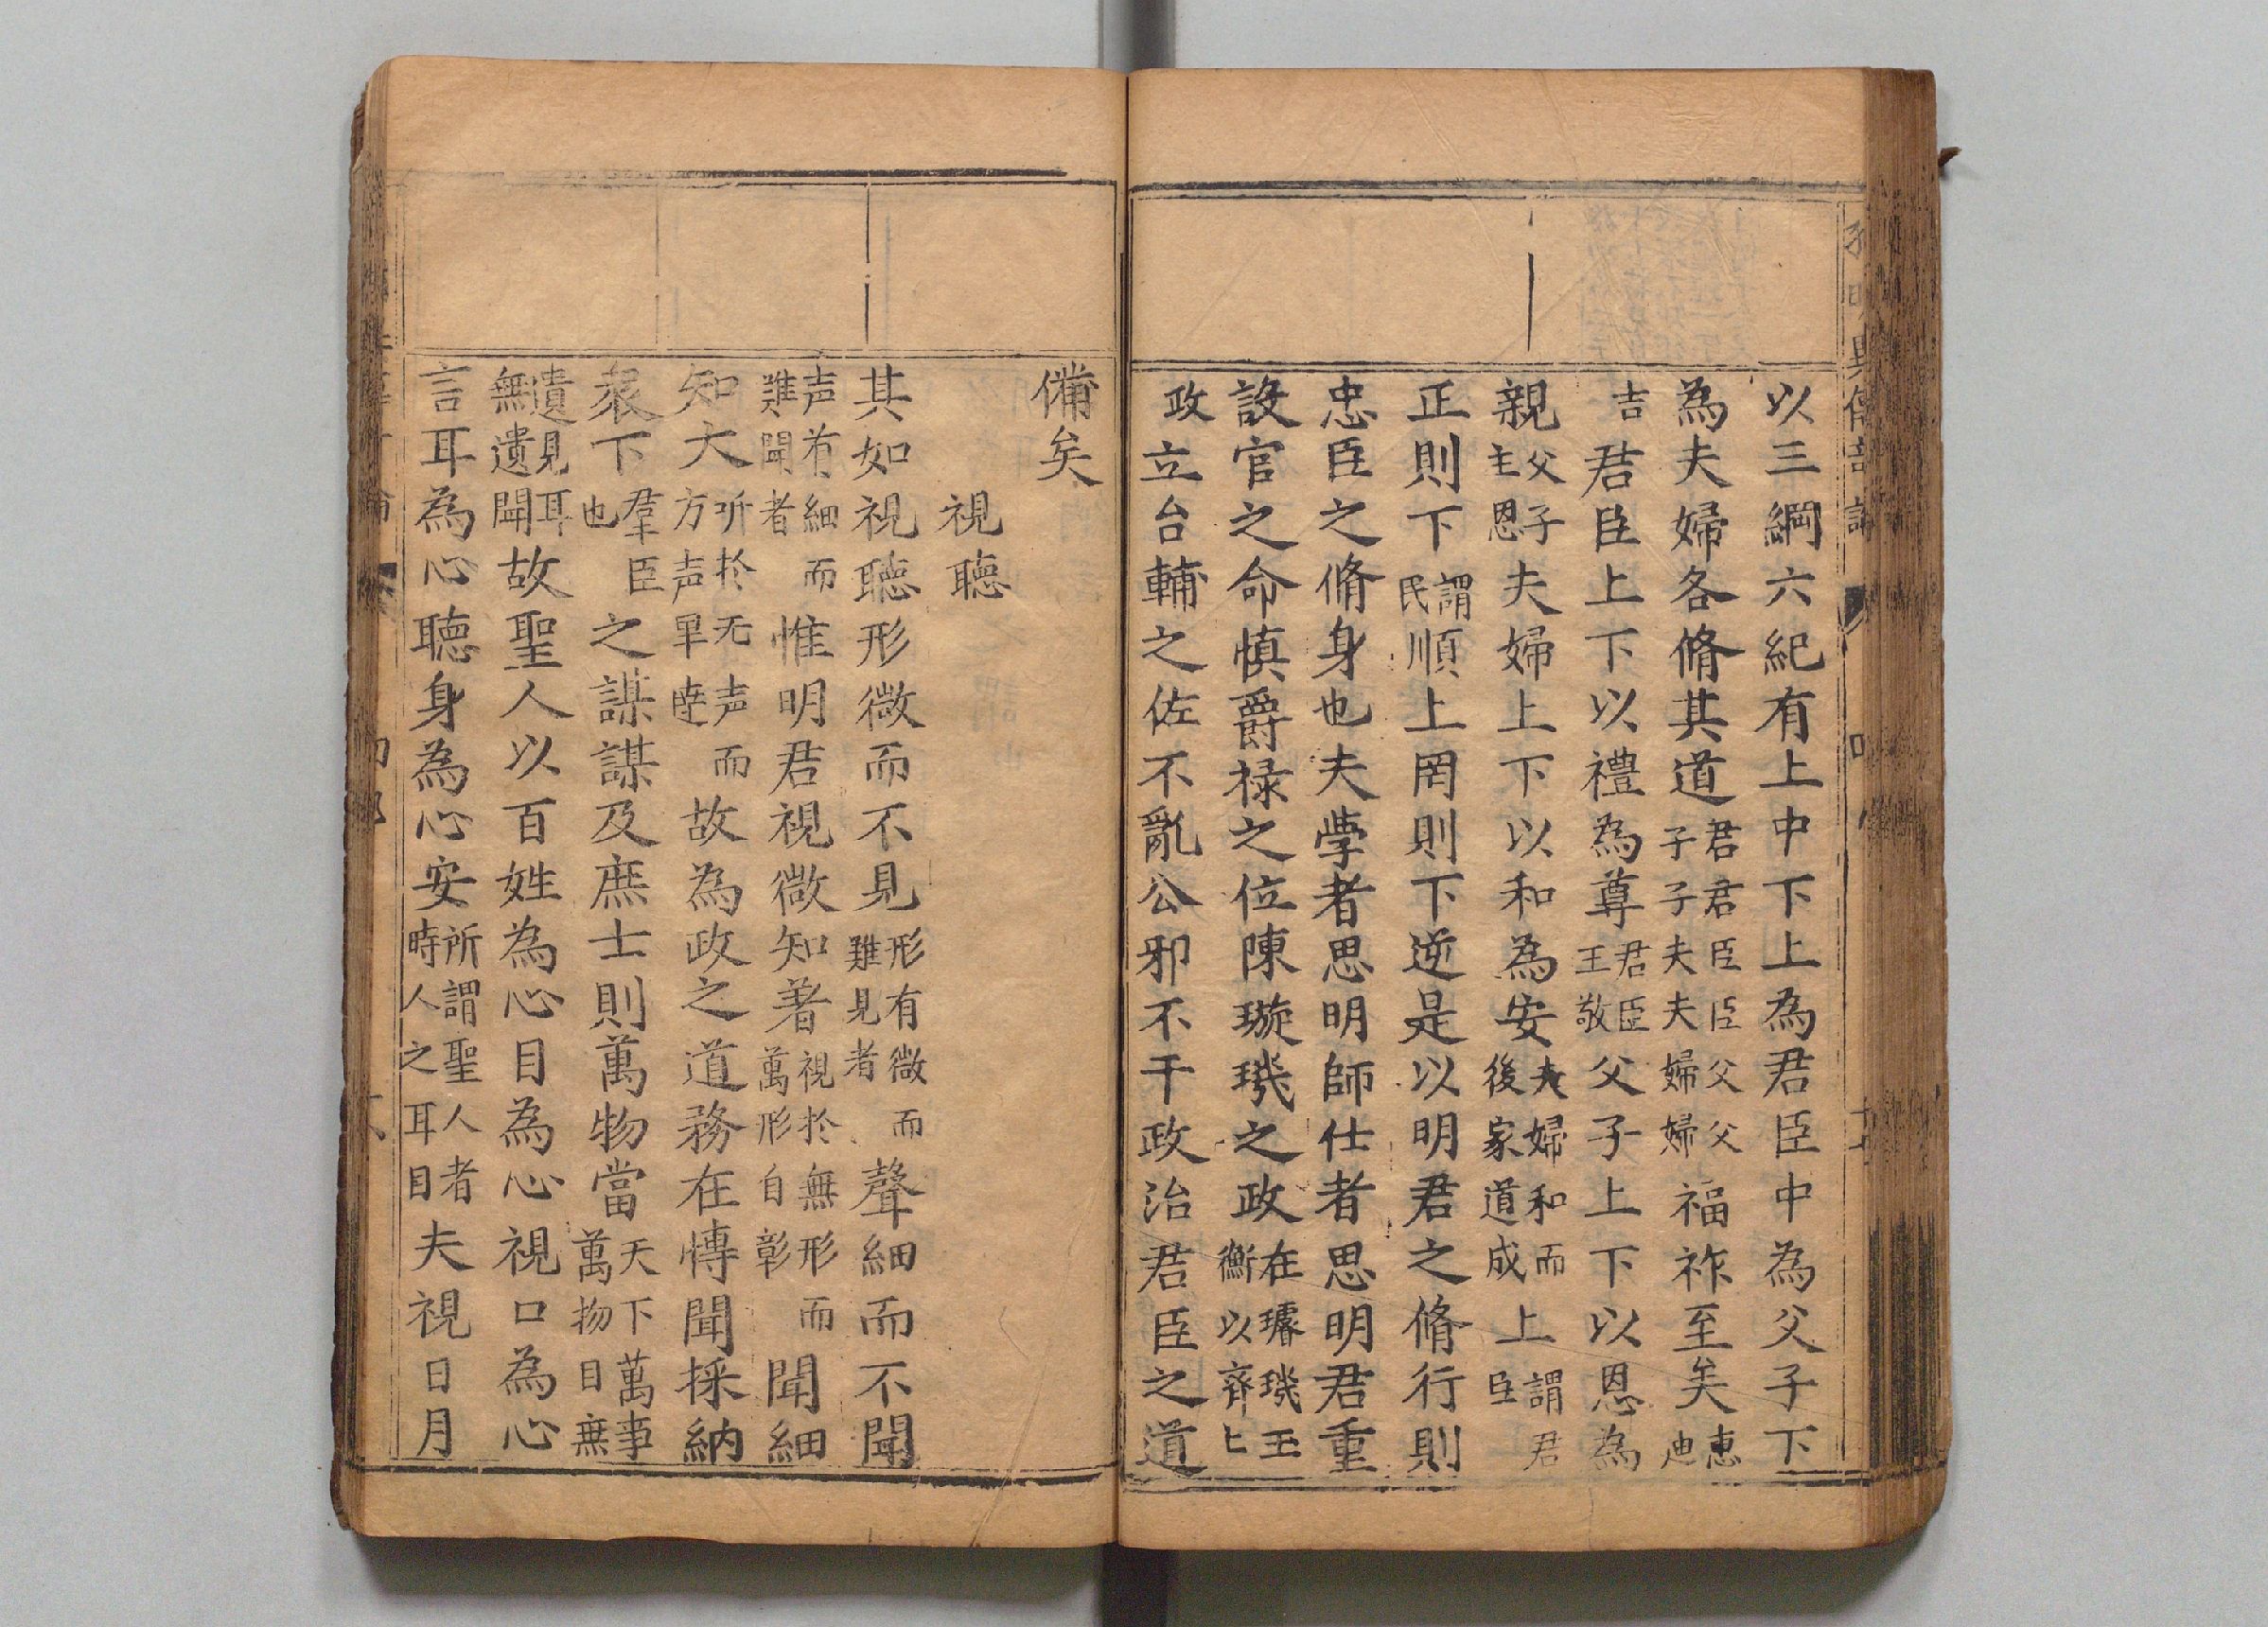 以三綱六紀有上中下上為君臣中為父子下
為夫婦各脩其道君君臣臣父父子子夫夫婦婦福祚至矣惠迪
吉君臣上下以禮為尊君臣王敬父子上下以恩為
親父子主恩夫婦上下以和為安夫婦和而後家道成上謂君臣
正則下謂民順上罔則下逆是以明君之脩行則
忠臣之脩身也夫學者思明師仕者思明君重
設官之命慎爵祿之位陳璇璣之政在璿璣玉衡以齊七
政立台輔之佐不亂公邪不干政治君臣之道
備矣
視聽
其如視聽形微而不見形有微而難見者聲細而不聞
声有細而難聞者惟明君視微知著視於無形而萬形自彰聞細
知大听於无声而方声畢達故為政之道務在愽聞採納
衆下羣臣也之謀謀及庶士則萬物當天下萬事萬物目無
遺見耳無遺聞故聖人以百姓為心目為心視口為心
言耳為心聽身為心安所謂聖人者時人之耳目夫視日月